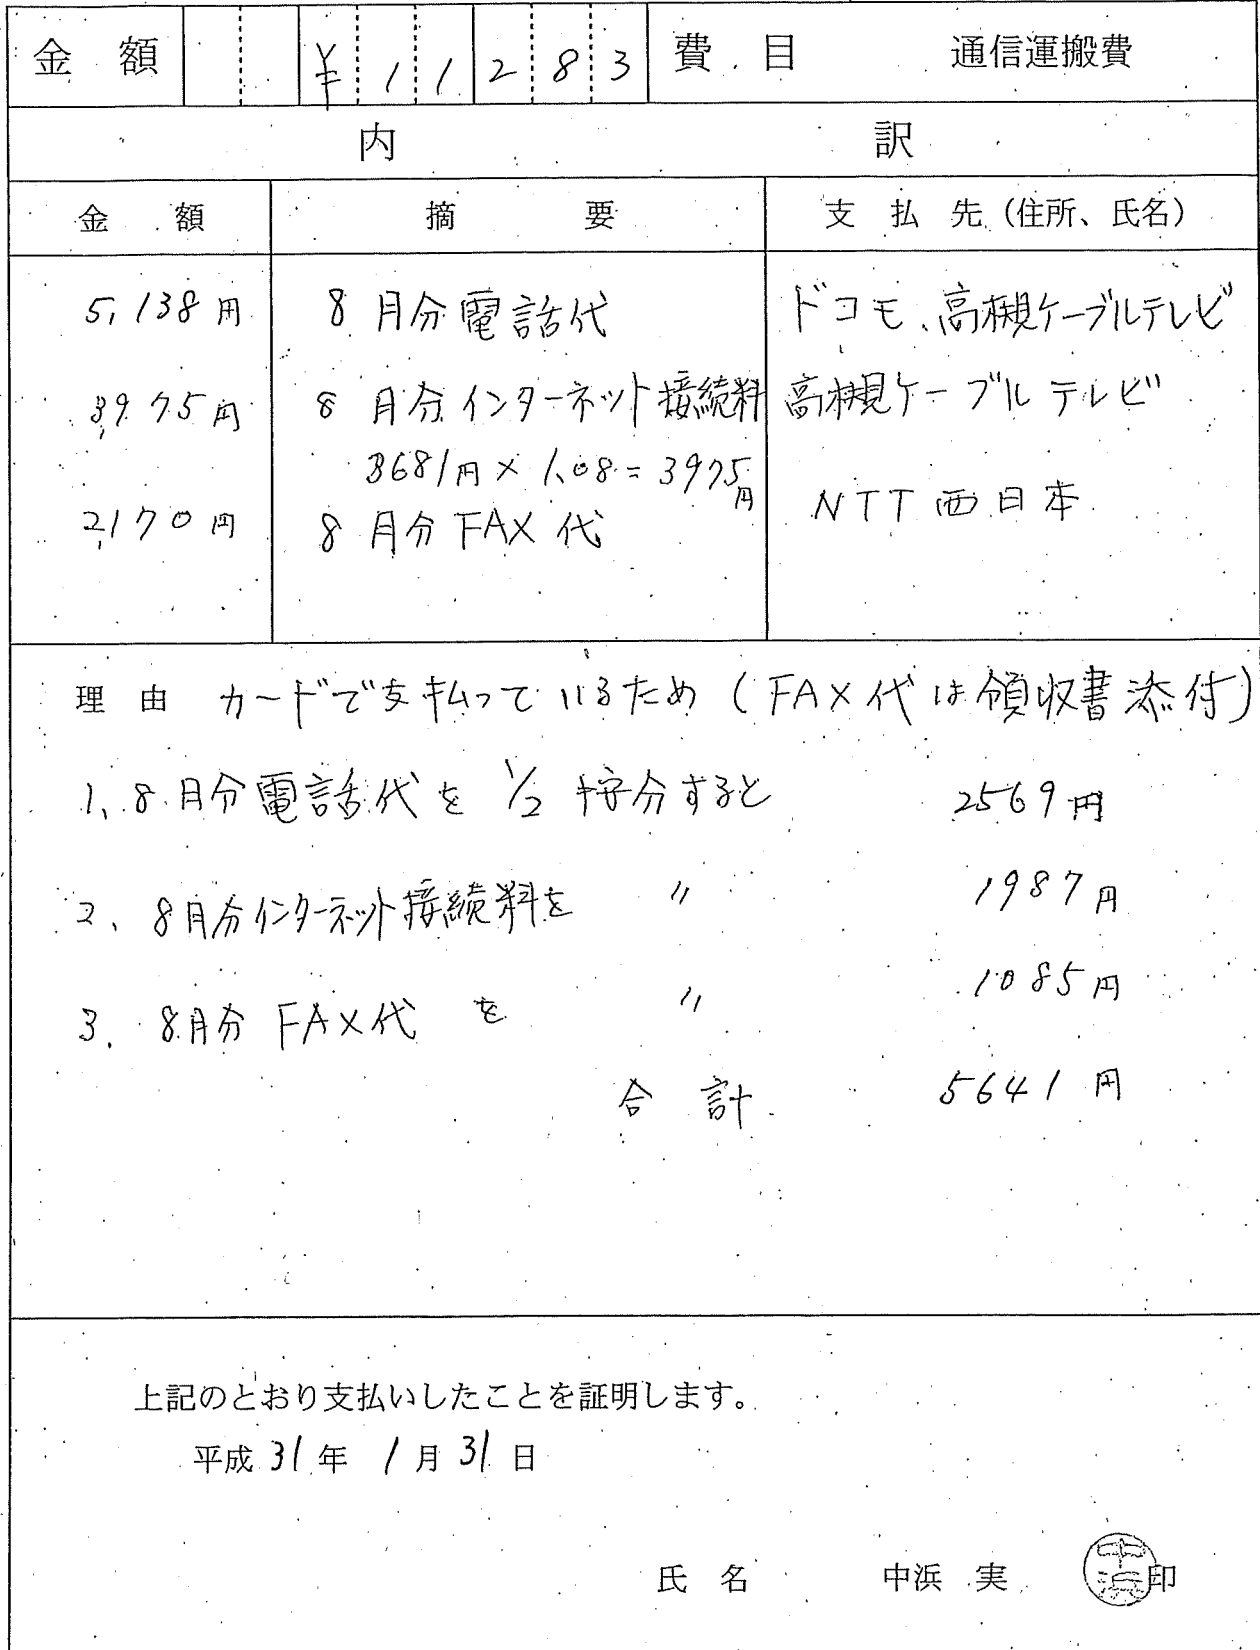 金額 ¥11283 費目 通信運搬費
内訳
金額 摘要 支払先（住所、氏名）
5,138円 8月分電話代 ドコモ、高槻ケーブルテレビ
3,975円 8月分インターネット接続料 高槻ケーブルテレビ
3681円×1.08=3975円
2,170円 8月分FAX代 NTT西日本
理由 カードで支払っているため（FAX代は領収書添付）
1、8月分電話代を1/2按分すると 2569円
2、8月分インターネット接続料を 〃 1987円
3. 8月分FAX代を 〃 1085円
合計 5641円
上記のとおり支払いしたことを証明します。
平成31年1月31日
氏名 中浜 実 中浜 印